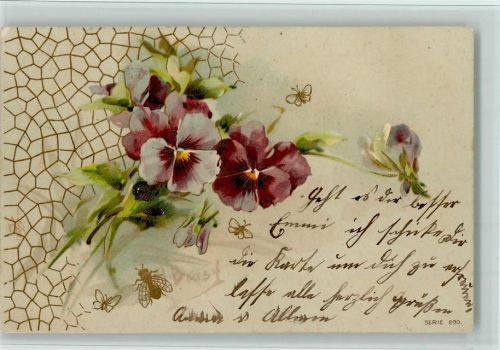 Geht es dir besser
Emmi ich schicke Dir
die Karte um dich zu erfreuen
lasse alle herzlich grüßen
Anna
SERIE 290.